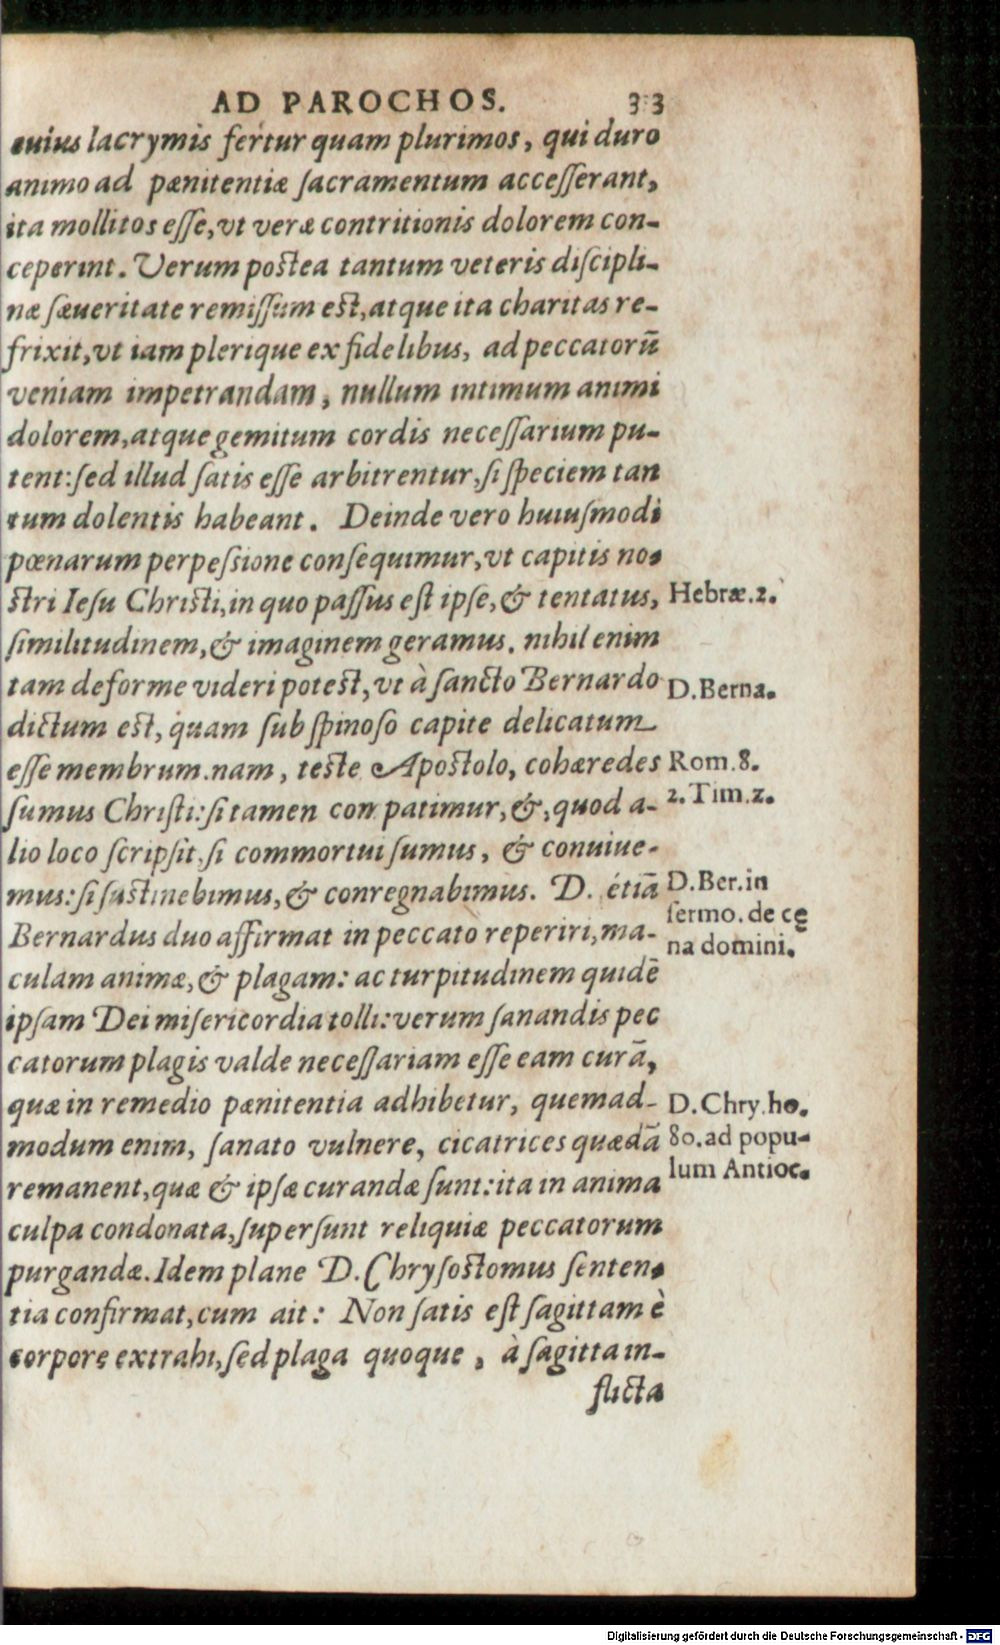 AD PAROCHOS. 33
cuius lacrymis fertur quam plurimos, qui duro
animo ad pænitentiæ ſacramentum acceſſerant,
ita mollitos eſſe, vt veræ contritionis dolorem con-
ceperint. Verum poſtea tantum veteris diſcipli-
næ ſæueritate remiſſum eſt, atque ita charitas re-
frixit, vt iam plerique ex fidelibus, ad peccatorū
veniam impetrandam, nullum intimum animi
dolorem, atque gemitum cordis neceſſarium pu-
tent: ſed illud ſatis eſſe arbitrentur, ſi ſpeciem tan
tum dolentis habeant. Deinde vero huiuſmodi
pœnarum perpeſsione conſequimur, vt capitis no-
ſtri Ieſu Chriſti, in quo paſſus eſt ipſe, & tentatus, Hebræ. 2.
ſimilitudinem, & imaginem geramus. nihil enim
tam deforme videri poteſt, vt à ſancto Bernardo D. Berna.
dictum eſt, quam ſub ſpinoſo capite delicatum
eſſe membrum. nam, teſte Apoſtolo, cohæredes Rom. 8.
ſumus Chriſti: ſi tamen compatimur, &, quod a- 2. Tim. 2.
lio loco ſcripſit, ſi commortui ſumus, & conuiue-
mus: ſi ſuſtinebimus, & conregnabimus. D. etiā D. Ber. in
Bernardus duo affirmat in peccato reperiri, ma- ſermo. de cę
culam animæ, & plagam: ac turpitudinem quidē na domini.
ipſam Dei miſericordia tolli: verum ſanandis pec
catorum plagis valde neceſſariam eſſe eam curā,
quæ in remedio pænitentia adhibetur, quemad- D. Chry. ho.
modum enim, ſanato vulnere, cicatrices quædā 80. ad popu-
remanent, quæ & ipſæ curandæ ſunt: ita in anima lum Antioc.
culpa condonata, ſuperſunt reliquiæ peccatorum
purgandæ. Idem plane D. Chryſoſtomus ſenten-
tia confirmat, cum ait: Non ſatis eſt ſagittam è
corpore extrahi, ſed plaga quoque, à ſagitta in-
flicta
Digitalisierung gefördert durch die Deutsche Forschungsgemeinschaft - DFG